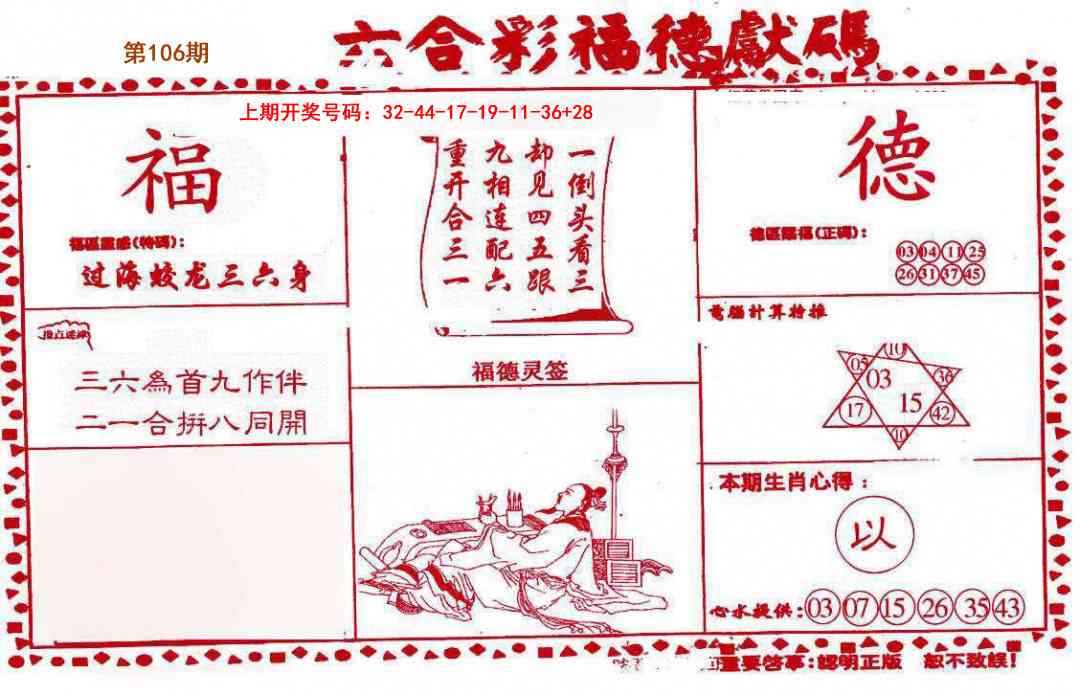 第106期
六合彩福德獻碼
上期开奖号码：32-44-17-19-11-36+28
福
福區靈感(特碼)：
过海蛟龙三六身
三六為首九作伴
二一合拼八同開
一倒头看三
却见四五跟
九相连配六
重开合三一
福德灵签
德
德區賜福(正碼)：
03 04 11 25
26 31 37 45
電腦計算特推
10
05 03 36
17 15 42
10
本期生肖心得：
以
心水提供：03 07 15 26 35 43
重要啓事：認明正版 恕不致誤！